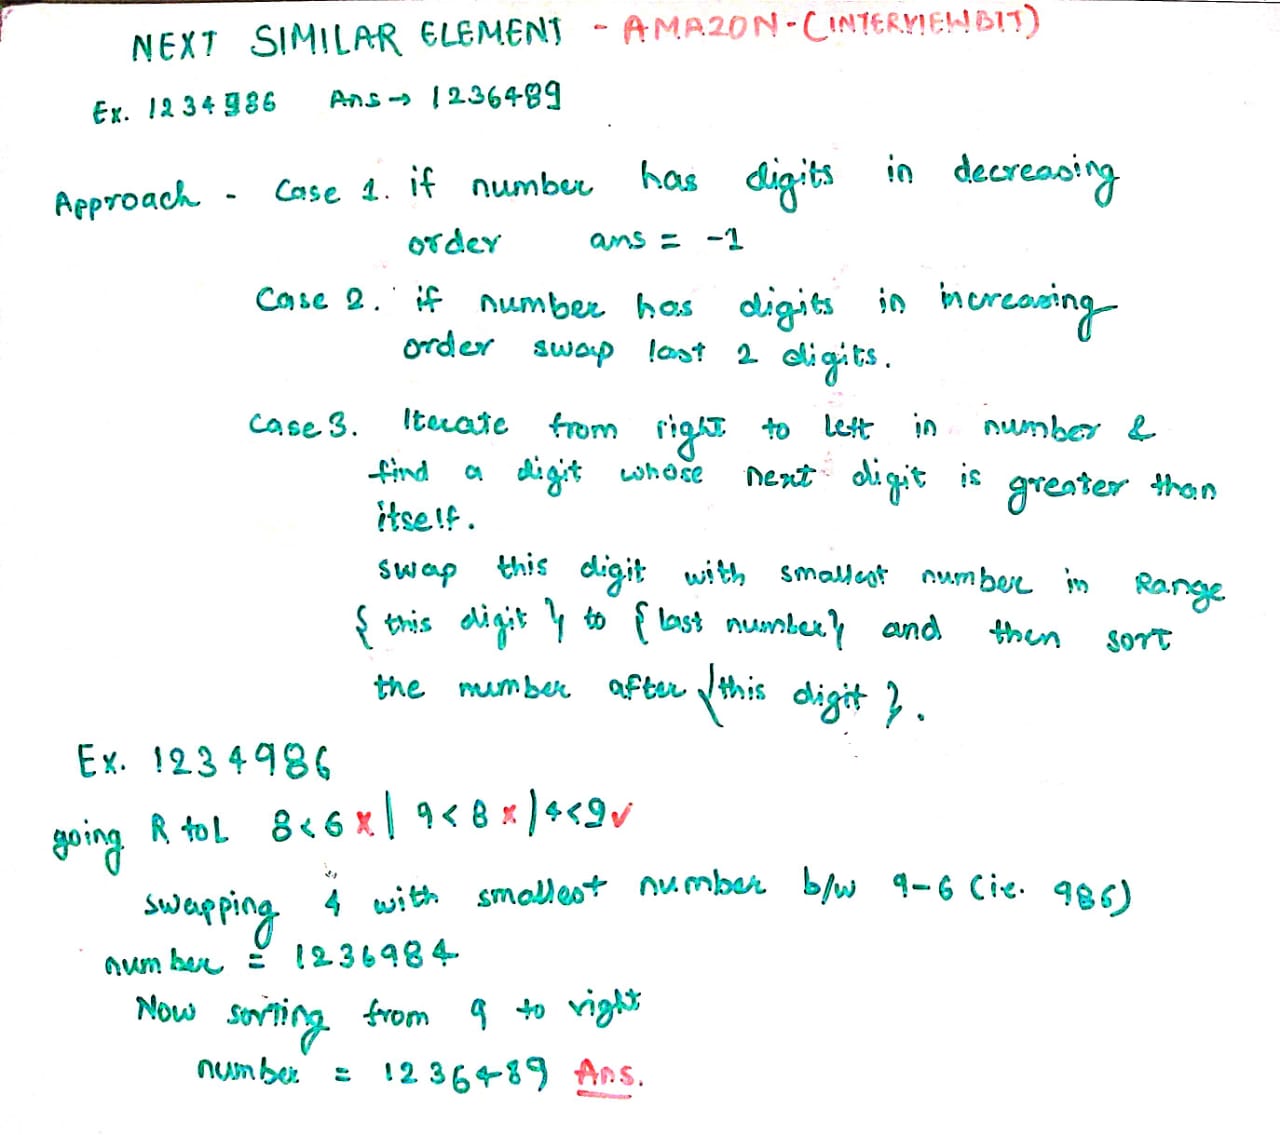 NEXT SIMILAR ELEMENT - AMAZON - (INTERVIEWBIT)
Ex. 1234986 Ans → 1236489
Approach - Case 1. if number has digits in decreasing
order ans = -1
Case 2. if number has digits in increasing
order swap last 2 digits.
Case 3. Iterate from right to left in number &
find a digit whose next digit is greater than
itself.
swap this digit with smallest number in Range
{ this digit } to { last number } and then sort
the number after { this digit }.
Ex. 1234986
going R to L 8<6 x | 9<8 x | 4<9 ✓
swapping 4 with smallest number b/w 9-6 (ie. 986)
number = 1236984
Now sorting from 9 to right
number = 1236489 Ans.